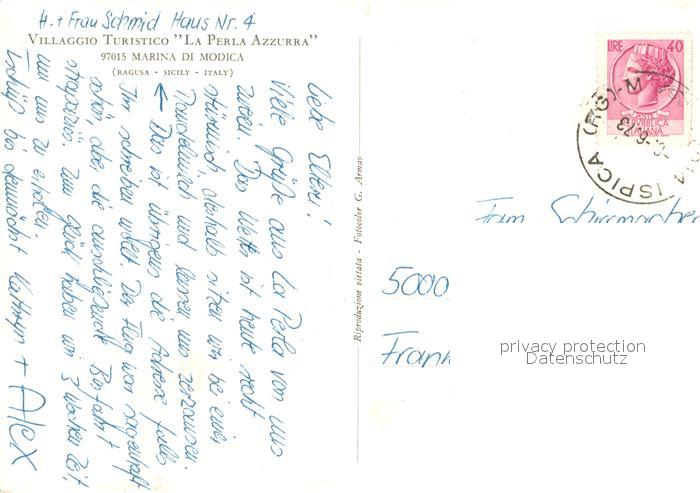 H. + Frau Schmid Haus Nr. 4
VILLAGGIO TURISTICO "LA PERLA AZZURRA"
97015 MARINA DI MODICA
(RAGUSA - SICILY - ITALY)
Liebe Eltern!
Viele Grüße aus La Perla von uns
zweien. Das Wetter ist heute recht
stürmisch, deshalb sitzen wir bei einem
und lassen uns zerzausen.
← Das ist übrigens die Adresse falls
Ihr schreiben wollt. Der Flug war sagenhaft
schön, aber die anschließende Busfahrt
strapaziös. Zum Glück haben wir 3 Wochen Zeit,
um uns zu erholen.
Tschüß bis demnächst Kathryn + Alex
Riproduzione vietata - Fotocolor G. Armao
LIRE 40
REPUBBLICA
ITALIANA
ISPICA (RG)
Frau Schirrmacher
5000
Frank
privacy protection
Datenschutz